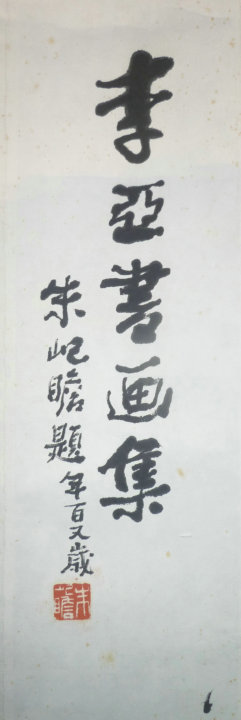 李亞書画集
朱屺瞻題年百又歲
朱屺瞻